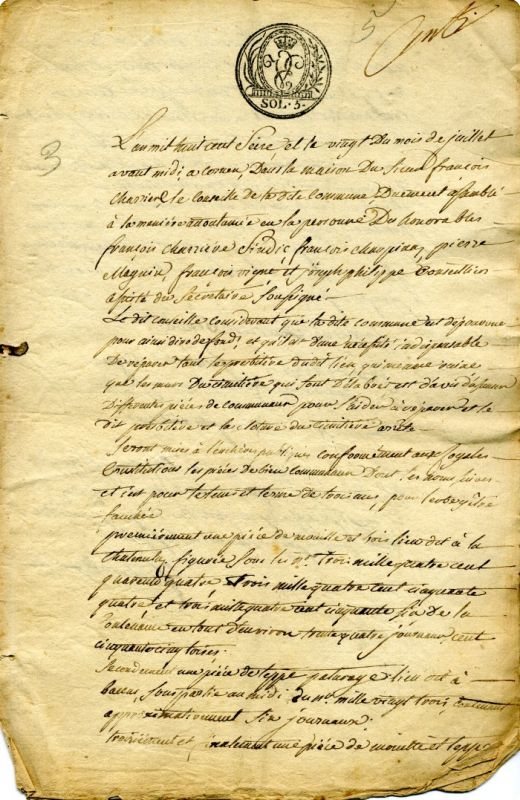 5
SOL. 5.
3
L'an mil huit cent Seize et le vingt Du mois de juillet
avant midi, a Dans la maison Du Sieur françois
Charrière le Conseille de la dite Commune, Duement assemblé
à la manière accoutumée en la personne Des honorables
françois Charrière Sindic, françois pierre
françois vigne et joseph philippe Conseillers
assisté du Sécrétaire Soussigné
Le dit Conseille Considérant que la dite commune est dépourvue
pour ainsi dire de fond, et qu'il est d'une nécessité indispensable
De réparer tout le presbitère du dit lieu qui menace ruine
que les murs Du cimitière qui sont
Differentes pièces de communaux pour s'aider à réparer et le
dit presbitère et la cloture du cimitière arrête
Seront mises à l'enchère publiques conformément aux Royales
Constitutions les pièces de bien communaux Dont les noms suivent
et c'est pour le tems et terme de trois ans, pour l'erbe être
fauchée
premièrement une pièce de et bois lieu dit à la
figurée sous les n.os trois mille quatre cent
quarante quatre trois mille quatre cent cinquante
quatre et trois mille quatre cent cinquante six De la
Contenance en tout D'environ trente quatre journaux cent
cinquante cinq toises.
Secondement une pièce de teppe paturage lieu dit à
sous partie au midi du n.o mille vingt trois, contenant
approximativement Six journaux.
troisièmement et finalement une pièce de et teppe